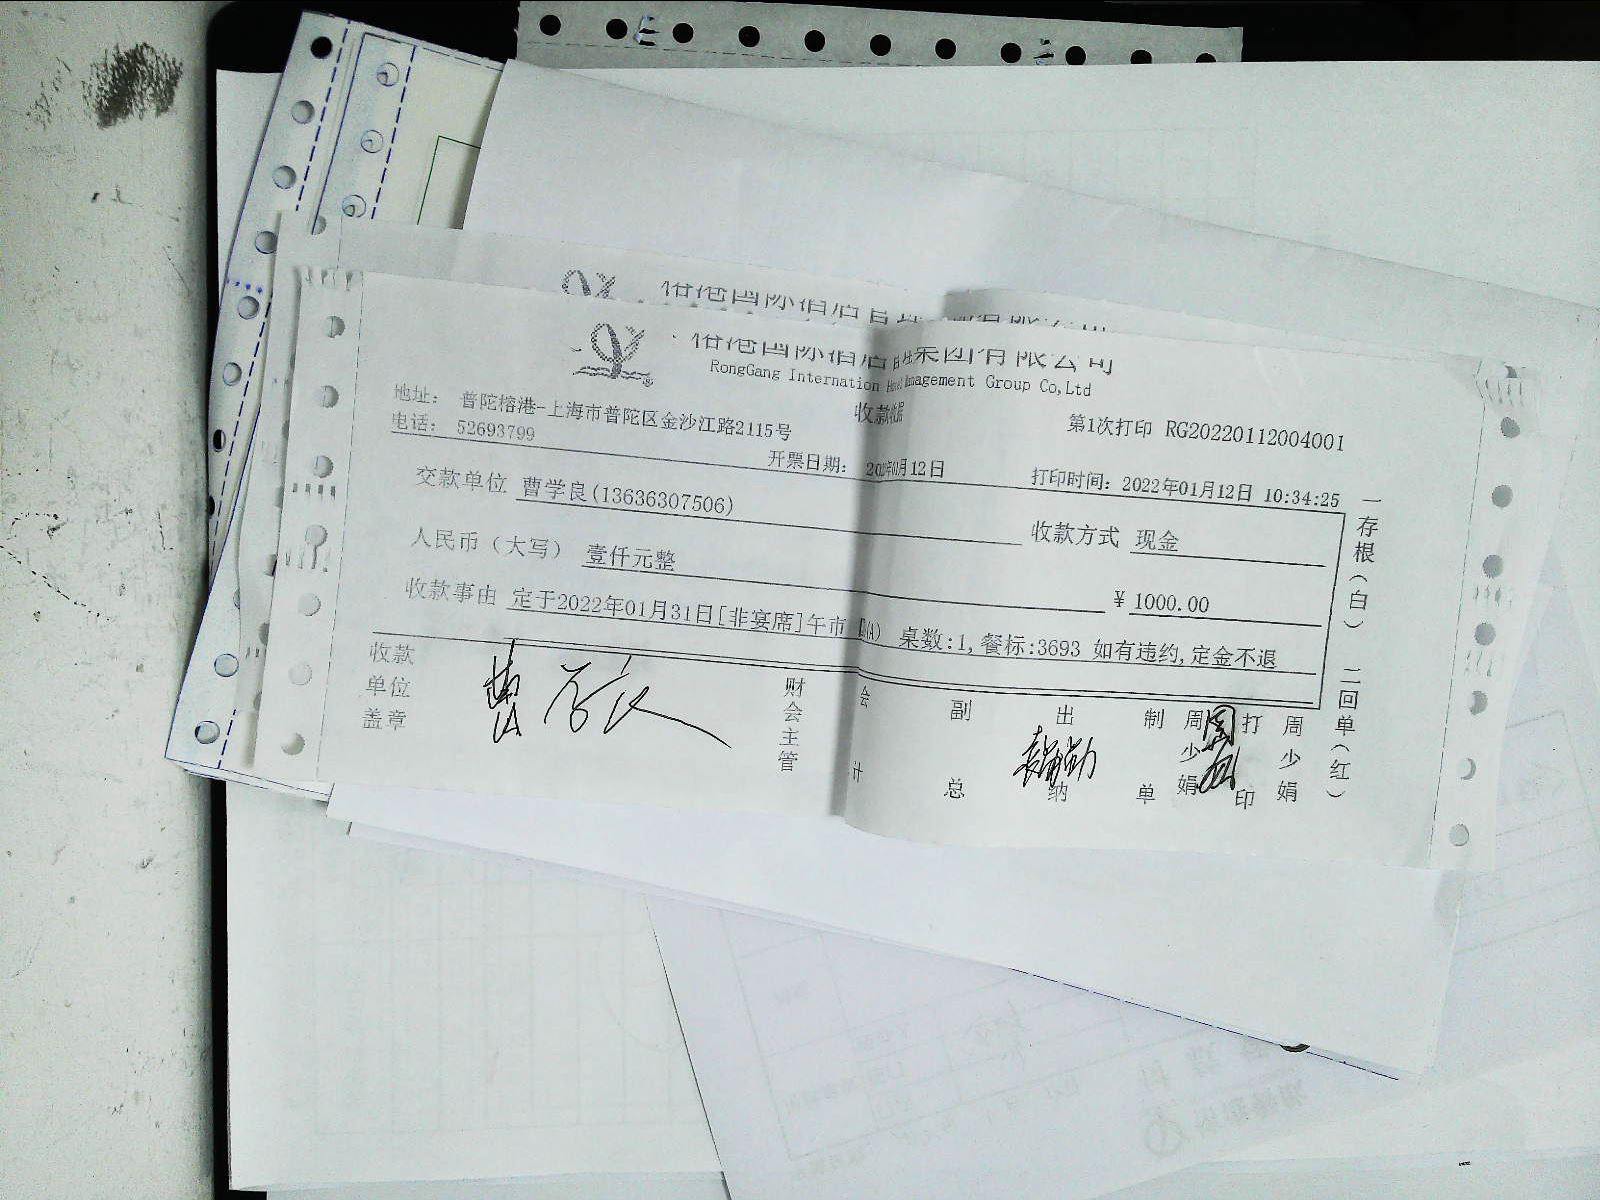 榕港国际酒店
集团有限公司
RongGang International Hotel Management Group Co,Ltd
收款收据
地址： 普陀榕港-上海市普陀区金沙江路2115号
电话： 52693799
第1次打印 RG20220112004001
开票日期： 2022年01月12日
打印时间：2022年01月12日 10:34:25
交款单位 曹学良(13636307506)
收款方式 现金
人民币（大写） 壹仟元整
￥ 1000.00
收款事由 定于2022年01月31日[非宴席]午市
桌数:1,餐标:3693 如有违约,定金不退
收款单位盖章
曹学良
财会主管
会计
副总
出纳
制单
周少娟
打印
周少娟
一存根(白) 二回单(红)